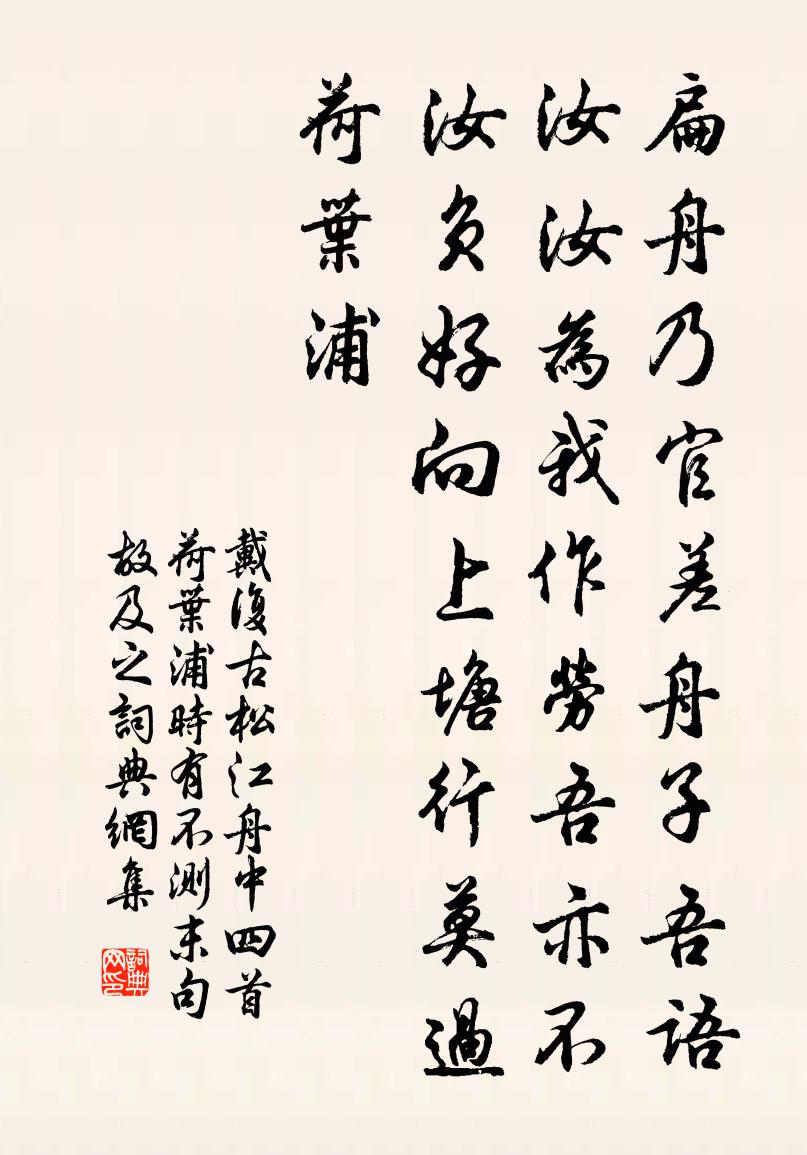 扁舟乃官差舟子吾語
汝汝為我作勞吾亦不
汝負好向上塘行莫過
荷葉浦
戴復古松江舟中四首
荷葉浦時有不測末句
故及之詞典網集
詞典网印